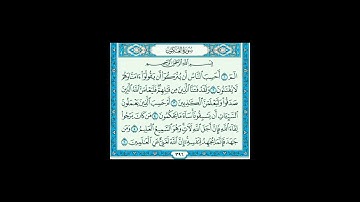 سورة العنكبوت
بسم الله الرحمن الرحيم
الٓمٓ ١ أَحَسِبَ ٱلنَّاسُ أَن يُتْرَكُوٓا۟ أَن يَقُولُوٓا۟ ءَامَنَّا وَهُمْ
لَا يُفْتَنُونَ ٢ وَلَقَدْ فَتَنَّا ٱلَّذِينَ مِن قَبْلِهِمْ فَلَيَعْلَمَنَّ ٱللَّهُ ٱلَّذِينَ
صَدَقُوا۟ وَلَيَعْلَمَنَّ ٱلْكَٰذِبِينَ ٣ أَمْ حَسِبَ ٱلَّذِينَ يَعْمَلُونَ
ٱلسَّيِّـَٔاتِ أَن يَسْبِقُونَا سَآءَ مَا يَحْكُمُونَ ٤ مَن كَانَ يَرْجُوا۟
لِقَآءَ ٱللَّهِ فَإِنَّ أَجَلَ ٱللَّهِ لَـَٔاتٍ وَهُوَ ٱلسَّمِيعُ ٱلْعَلِيمُ ٥ وَمَن
جَٰهَدَ فَإِنَّمَا يُجَٰهِدُ لِنَفْسِهِۦٓ إِنَّ ٱللَّهَ لَغَنِىٌّ عَنِ ٱلْعَٰلَمِينَ ٦
٣٩٦